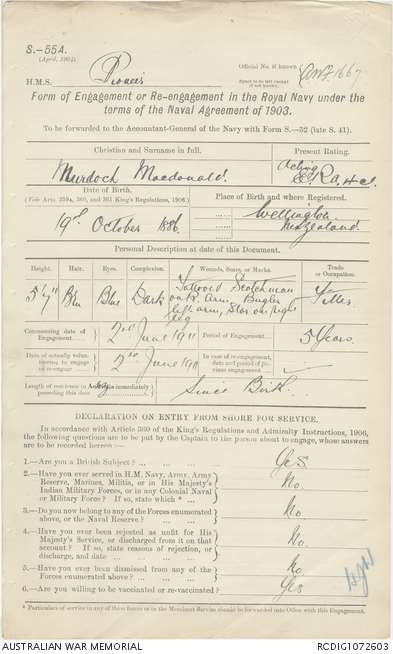 S.—55A.
(April, 1904)
Official No. if known
(Space to be left vacant if not known).
H.M.S. Pioneer
Form of Engagement or Re-engagement in the Royal Navy under the
terms of the Naval Agreement of 1903.
To be forwarded to the Accountant-General of the Navy with Form S.—52 (late S. 41).
Christian and Surname in full.
Present Rating.
Murdoch Macdonald.
Acting
E.R.A. 4 cl.
Date of Birth.
(Vide Arts. 359A, 360, and 361 King's Regulations, 1906.)
Place of Birth and where Registered.
19th October 1886.
Wellington
New Zealand
Personal Description at date of this Document.
Height. Hair. Eyes. Complexion. Wounds, Scars, or Marks. Trade or Occupation.
5'7" Blue Dark
Tattooed Scotchman
on R. Arm. Bugler
left arm, Star on right
leg
Fitter
Commencing date of Engagement
2nd June 1911
Period of Engagement
5 Years.
Date of actually volunteering to engage or re-engage
2nd June 1911
In case of re-engagement, date and period of previous engagement
Length of residence in immediately preceding this date
Since Birth
DECLARATION ON ENTRY FROM SHORE FOR SERVICE.
In accordance with Article 360 of the King's Regulations and Admiralty Instructions, 1906,
the following questions are to be put by the Captain to the person about to engage, whose answers
are to be recorded hereon :—
1.—Are you a British Subject? ... Yes
2.—Have you ever served in H.M. Navy, Army, Army
Reserve, Marines, Militia, or in His Majesty's
Indian Military Forces, or in any Colonial Naval
or Military Force? If so, state which * ... No.
3.—Do you now belong to any of the Forces enumerated
above, or the Naval Reserve? ... No
4.—Have you ever been rejected as unfit for His
Majesty's Service, or discharged from it on that
account? If so, state reasons of rejection, or
discharge, and date ... No.
5.—Have you ever been dismissed from any of the
Forces enumerated above? ... No
6.—Are you willing to be vaccinated or re-vaccinated? Yes
* Particulars of service in any of these forces or in the Merchant Service should be forwarded into Office with this Engagement.
AUSTRALIAN WAR MEMORIAL
RCDIG1072603